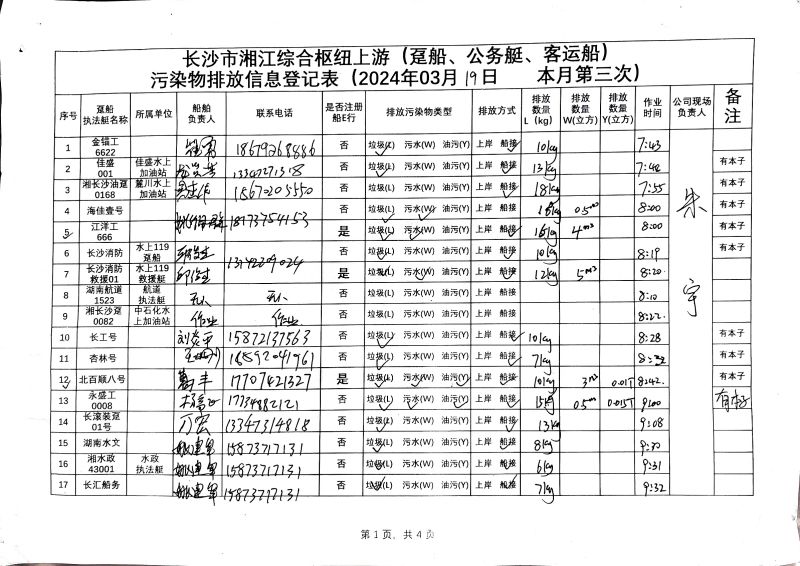 长沙市湘江综合枢纽上游（趸船、公务艇、客运船）
污染物排放信息登记表（2024年03月19日 本月第三次）
序号 趸船执法艇名称 所属单位 船舶负责人 联系电话 是否注册船E行 排放污染物类型 排放方式 排放数量L（kg） 排放数量W(立方) 排放数量Y(立方) 作业时间 公司现场负责人 备注
1 金锚工6622 18679268886 否 垃圾(L) 污水(W) 油污(Y) 上岸 船接 10kg 7:43
2 佳盛001 佳盛水上加油站 13347271318 否 垃圾(L) 污水(W) 油污(Y) 上岸 船接 13kg 7:48 有本子
3 湘长沙油趸0168 麓川水上加油站 18670205550 否 垃圾(L) 污水(W) 油污(Y) 上岸 船接 18kg 7:55 有本子
4 海佳壹号 否 垃圾(L) 污水(W) 油污(Y) 上岸 船接 18kg 05m³ 8:00 有本子
5 江洋工666 18173754153 是 垃圾(L) 污水(W) 油污(Y) 上岸 船接 16kg 4m³ 8:00 有本子
6 长沙消防 水上119趸船 否 垃圾(L) 污水(W) 油污(Y) 上岸 船接 10kg 8:19 有本子
7 长沙消防救援01 水上119救援艇 13142209024 是 垃圾(L) 污水(W) 油污(Y) 上岸 船接 12kg 5m³ 8:20
8 湖南航道1523 航道执法艇 无人 无人 否 垃圾(L) 污水(W) 油污(Y) 上岸 船接 8:10
9 湘长沙趸0082 中石化水上加油站 作业 作业 否 垃圾(L) 污水(W) 油污(Y) 上岸 船接 8:22
10 长工号 15872137563 否 垃圾(L) 污水(W) 油污(Y) 上岸 船接 10kg 8:28 有本子
11 杏林号 18692041961 否 垃圾(L) 污水(W) 油污(Y) 上岸 船接 7kg 8:32 有本子
12 北百顺八号 17707421327 是 垃圾(L) 污水(W) 油污(Y) 上岸 船接 10kg 3m³ 0.01T 8:42 有本子
13 永盛工0008 17734882121 否 垃圾(L) 污水(W) 油污(Y) 上岸 船接 15kg 05m³ 0.015T 9:00 有本子
14 长滚装趸01号 万宏 13347314818 否 垃圾(L) 污水(W) 油污(Y) 上岸 船接 13kg 9:08
15 湖南水文 15873717131 否 垃圾(L) 污水(W) 油污(Y) 上岸 船接 8kg 9:30
16 湘水政43001 水政执法艇 15873717131 否 垃圾(L) 污水(W) 油污(Y) 上岸 船接 6kg 9:31
17 长汇船务 15873717131 否 垃圾(L) 污水(W) 油污(Y) 上岸 船接 7kg 9:32
朱宇
第 1 页，共 4 页